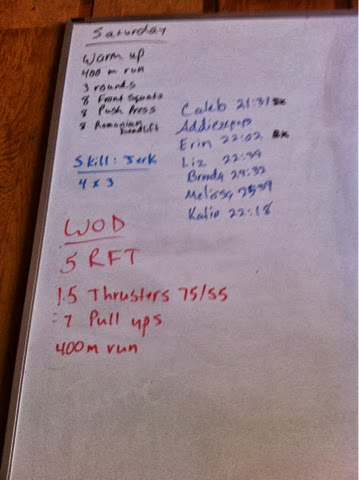 Saturday
Warm up
400 m run
3 rounds
8 Front Squats
8 Push Press
8 Romanian Deadlift
Skill: Jerk
4 x 3
Caleb 21:31 Rx
Erin 22:02 Rx
Liz 22:39
Brenda 24:32
Melissa
Katie 22:18
WOD
5 RFT
15 Thrusters 75/55
7 Pull ups
400m run